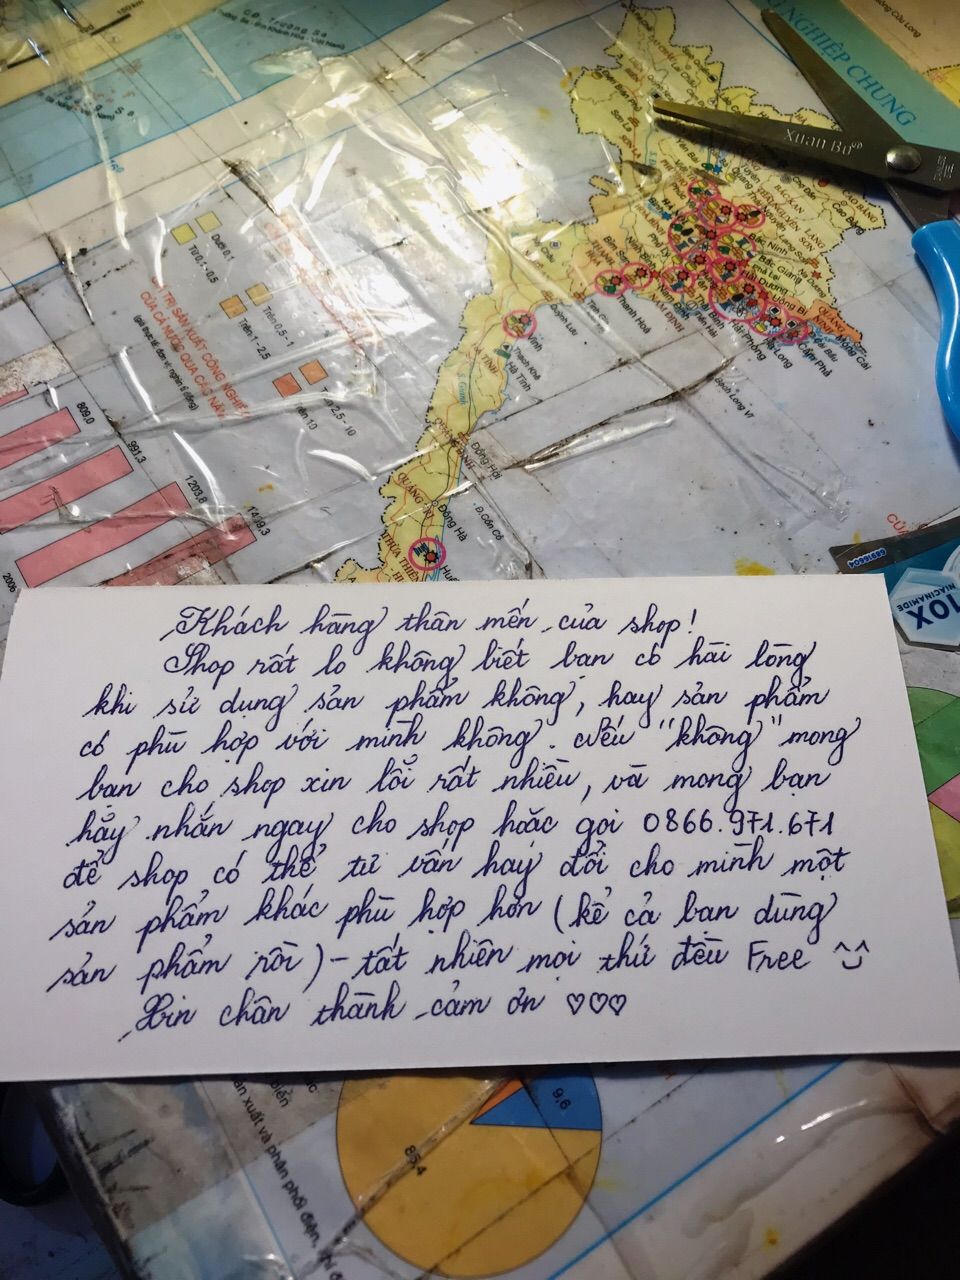 Khách hàng thân mến của shop!
Shop rất lo không biết bạn có hài lòng
khi sử dụng sản phẩm không, hay sản phẩm
có phù hợp với mình không. Nếu "không" mong
bạn cho shop xin lỗi rất nhiều, và mong bạn
hãy nhắn ngay cho shop hoặc gọi 0866.971.671
để shop có thể tư vấn hay đổi cho mình một
sản phẩm khác phù hợp hơn (kể cả bạn dùng
sản phẩm rồi) - tất nhiên mọi thứ đều Free ^^
Xin chân thành cảm ơn ♡♡♡
NGHIỆP CHUNG
Xuan Bu
QĐ. Trường Sa
Dưới 0,1
Từ 0,1 - 0,5
Trên 0,5 - 1
Trên 1 - 2,5
Trên 2,5 - 10
Trên 10
GIÁ TRỊ SẢN XUẤT CÔNG NGHIỆP
CỦA CẢ NƯỚC QUA CÁC NĂM
809,0
991,3
1203,8
1469,3
2006
Vinh
Thạch Khê
Hà Tĩnh
Đồng Hới
Đ.Cồn Cỏ
Đông Hà
QUẢNG TRỊ
THỪA THIÊN
Huế
Quỳnh Lưu
Tĩnh Gia
Thanh Hoá
NAM ĐỊNH
Hải Phòng
Hạ Long
Cẩm Phả
Móng Cái
Bạch Long Vĩ
Hải Dương
Bắc Giang
Bắc Ninh
Cao Bằng
CAO BẰNG
Sơn La
10X
NIACINAMIDE
85,4
9,6
sản xuất và phân phối điện,